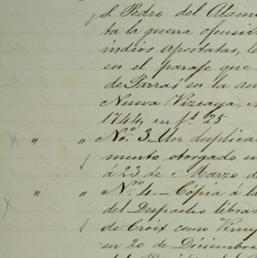 S. Pedro del Alam
ta la guerra ofensi
indios apostatas, l
en el paraje que
de Parras en la
Nueva Vizcaya,
1744, en fs. 25
" " Nº. 3 Un duplica
mento otorgado en
á 23 de Marzo d
" " Nº. 4.- Cópia á la
del Despacho libra
de Croix como Virey
en 20 de Diciembre